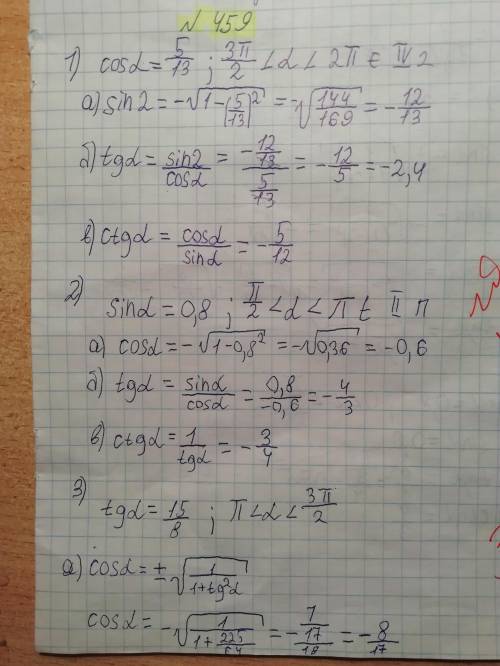 № 459
1) cosα = 5/13 ; 3π/2 < α < 2π ∈ IV 2
а) sin2 = -√(1-(5/13)²) = -√(144/169) = -12/13
б) tgα = sin2/cosα = (-12/13)/(5/13) = -12/5 = -2,4
в) ctgα = cosα/sinα = -5/12
2)
sinα = 0,8 ; π/2 < α < π t II п
а) cosα = -√(1-0,8²) = -√0,36 = -0,6
б) tgα = sinα/cosα = 0,8/-0,6 = -4/3
в) ctgα = 1/tgα = -3/4
3)
tgα = 15/8 ; π < α < 3π/2
а) cosα = ±√(1/(1+tg²α))
cosα = -√(1/(1+225/64)) = -1/(17/18) = -8/17